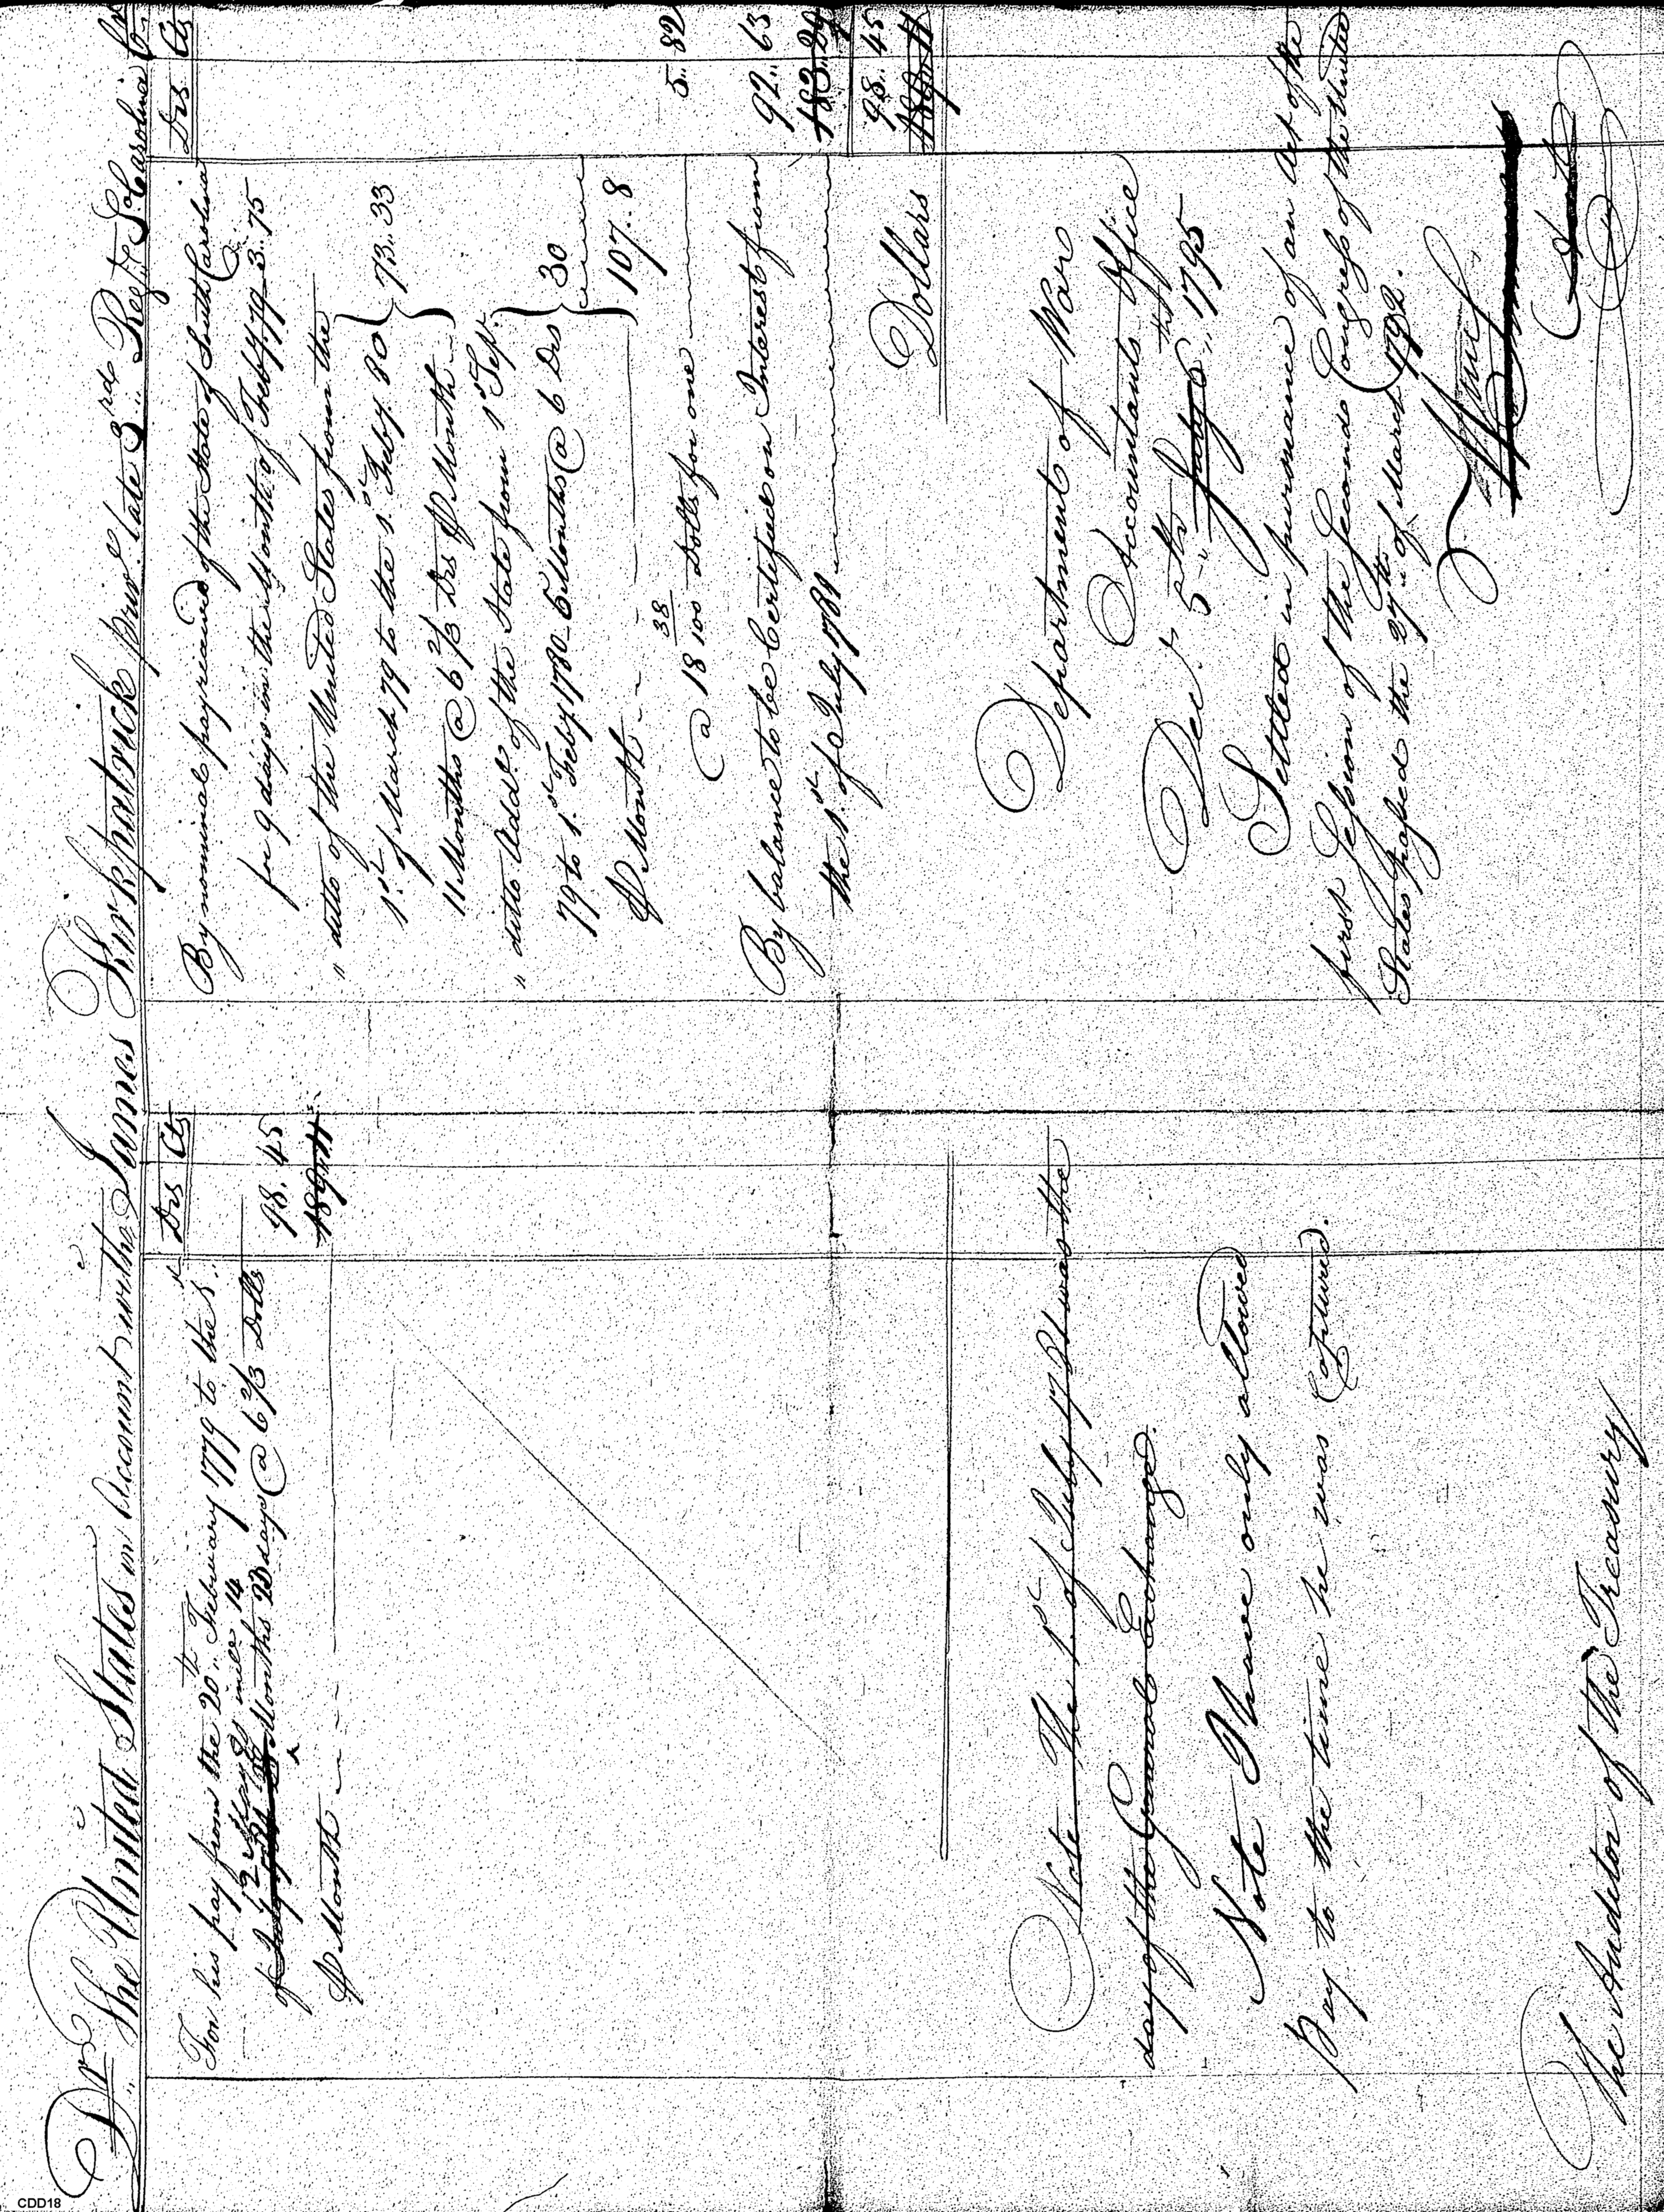 Dr The United States in Account with James Kirkpatrick priv.e late 3rd Reg.t So. Carolina Cr
Drs Cts
For his pay from the 20th February 1779 to the 1st
12 May 80 incl.e 14
of Months 23 days @ 6 2/3 Dolls 98.45
℔ Month 189.11
Note The 1st of July 1781 was the
day of the General Exchange.
Note I have only allowed
pay to the time he was Captured.
The Auditor of the Treasury
Drs Cts
By nominal pay received of the State of South Carolina
for 9 days in the Month of Feby 1779 3..75
" ditto of the United States from the
1st of March 79 to the 1st Feby. 80 } 73..33
11 Months @ 6 2/3 Drs ℔ Month
" ditto Addl. of the State from 1st Sept.
79 to 1st Feby 1780 5 Months @ 6 Drs } 30
℔ Month 107..8
@ 18 38/100 Dolls for one 5..82
By balance to be Certified on Interest from 92..63
the 1st of July 1781 183..29
98..45
189..11
Dollars
Department of War
Accountants Office
Decr 5th July 6th 1795
Settled in pursuance of an Act of the
first Session of the Second Congress of the United
States passed the 27th of March 1792.